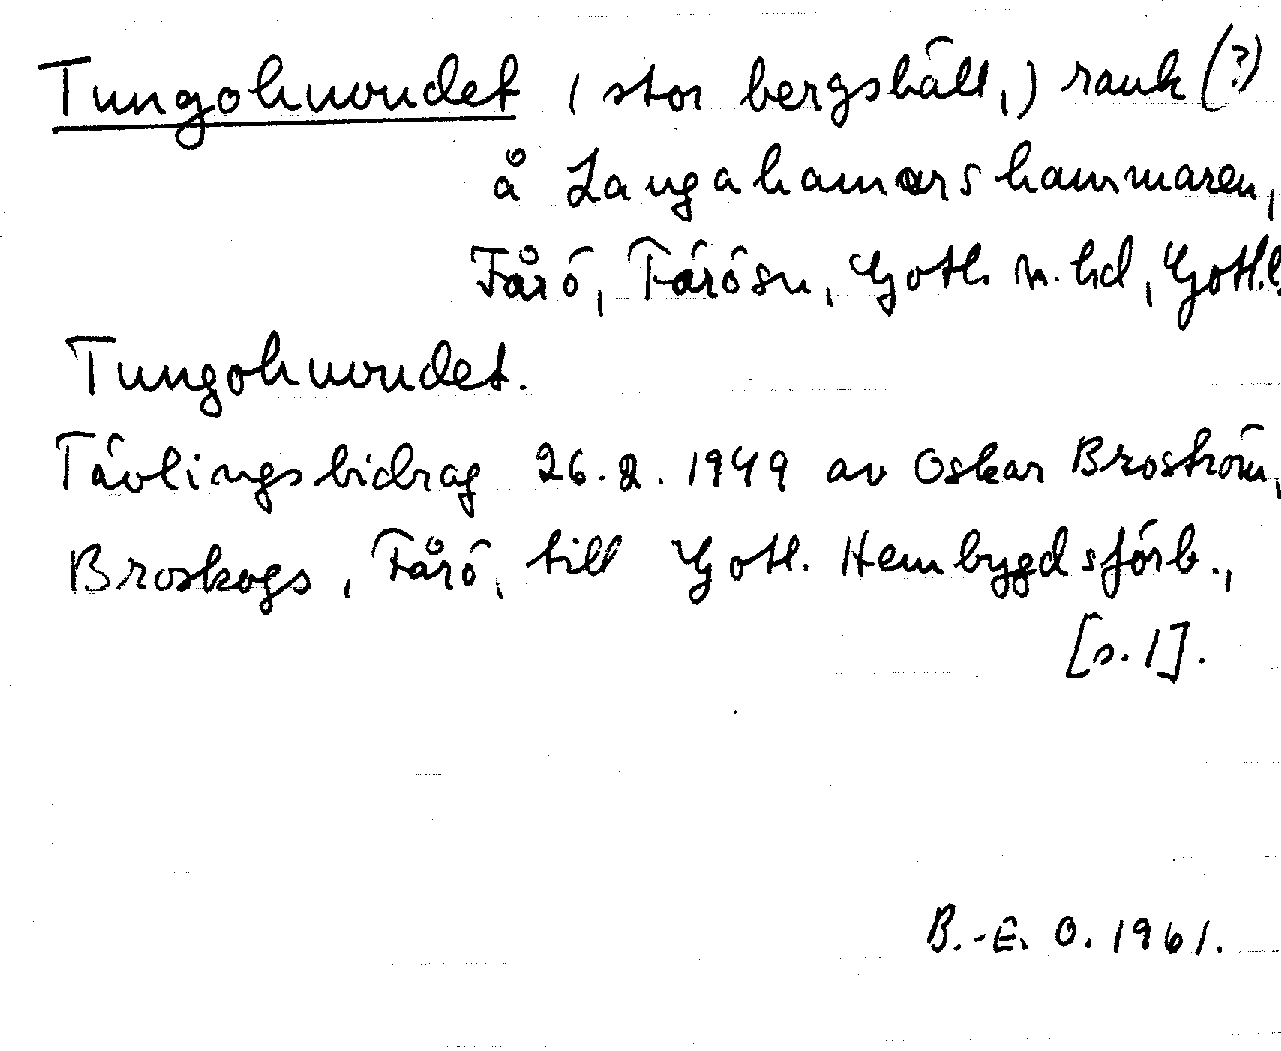 Tungohuvudet (stor bergshäll,) rauk (?)
å Langahamarshammaren,
Fårö, Fårösu, Gotl. n. hd, Gotl.l.
Tungohuvudet.
Tävlingsbidrag 26.2.1949 av Oskar Broström,
Broskogs, Fårö, till Gotl. Hembygdsförb.,
[s. 1].
B.-E. O. 1961.